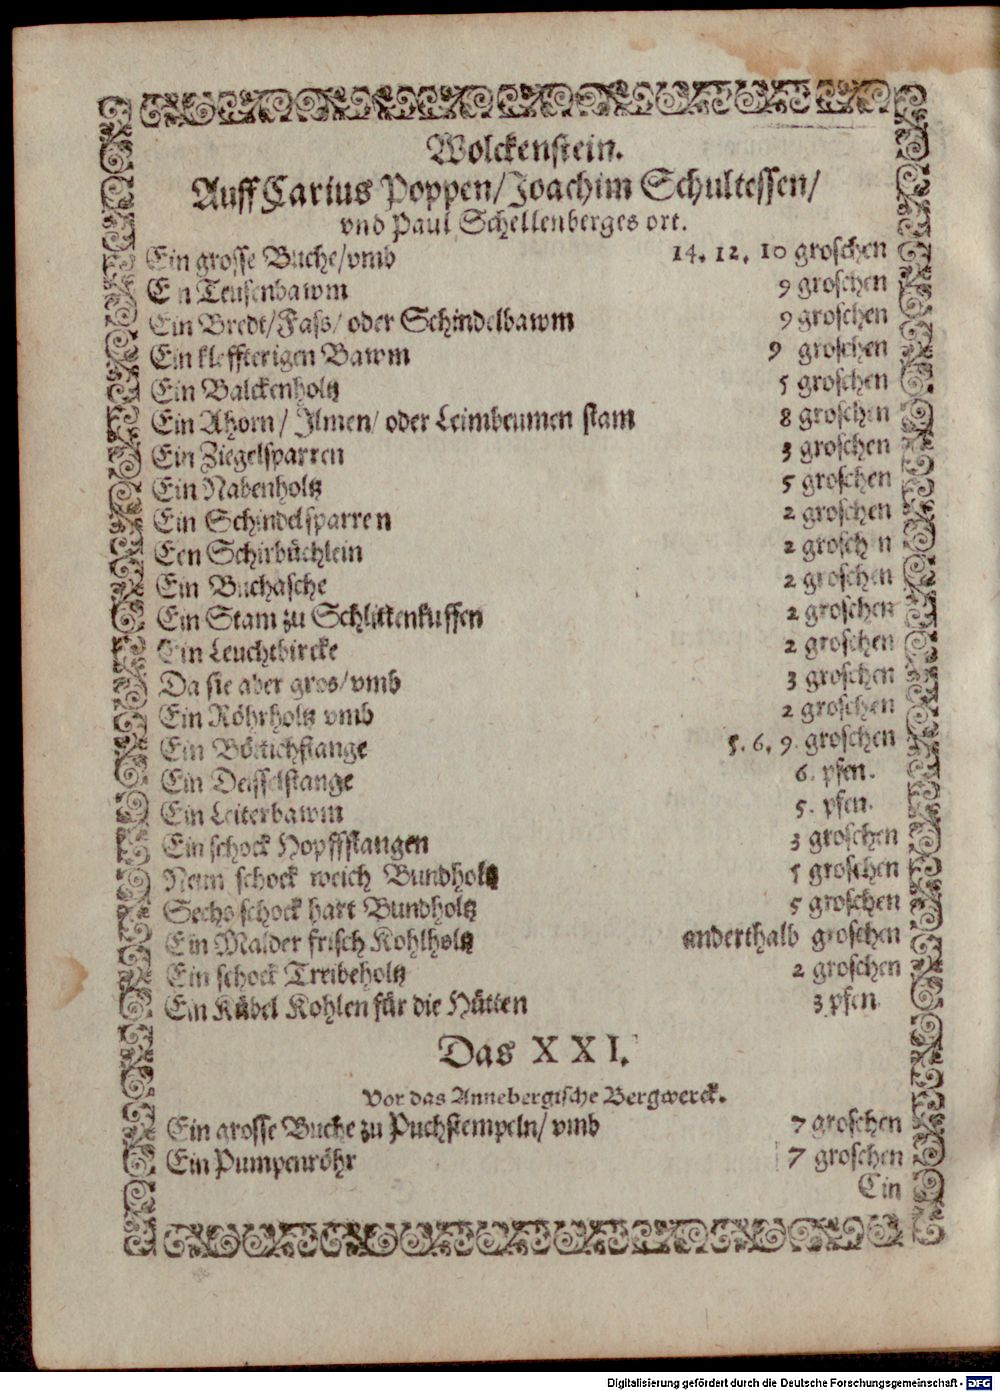 Wolckenstein.
Auff Carius Poppen/Joachim Schultessen/
vnd Paul Schellenberges ort.
Ein grosse Buche/vmb 14. 12. 10 groschen
E n Teufenbawm 9 groschen
Ein Bredt/Fass/ oder Schindelbawm 9 groschen
Ein kleffterigen Bawm 9 groschen
Ein Balckenholtz 5 groschen
Ein Ahorn/ Ilmen/ oder Leimbeumen stam 8 groschen
Ein Ziegelsparren 3 groschen
Ein Nabenholtz 5 groschen
Ein Schindelsparren 2 groschen
Een Schirbüchlein 2 grosch n
Ein Buchasche 2 groschen
Ein Stam zu Schlittenkuffen 2 groschen
Ein Leuchtbircke 2 groschen
Da sie aber gros/vmb 3 groschen
Ein Röhrholtz vmb 2 groschen
Ein Böttichstange 5. 6. 9 groschen
Ein Deisselstange 6. pfen.
Ein Leiterbawm 5. pfen.
Ein schock Hopffstangen 3 groschen
Neun schock weich Bundholtz 5 groschen
Sechs schock hart Bundholtz 5 groschen
Ein Malder frisch Kohlholtz anderthalb groschen
Ein schock Treibeholtz 2 groschen
Ein Kübel Kohlen für die Hütten 3 pfen.
Das XXI.
Vor das Annebergische Bergwerck.
Ein grosse Buche zu Puchstempeln/ vmb 7 groschen
Ein Pumpenröhr 7 groschen
Ein
Digitalisierung gefördert durch die Deutsche Forschungsgemeinschaft - DFG